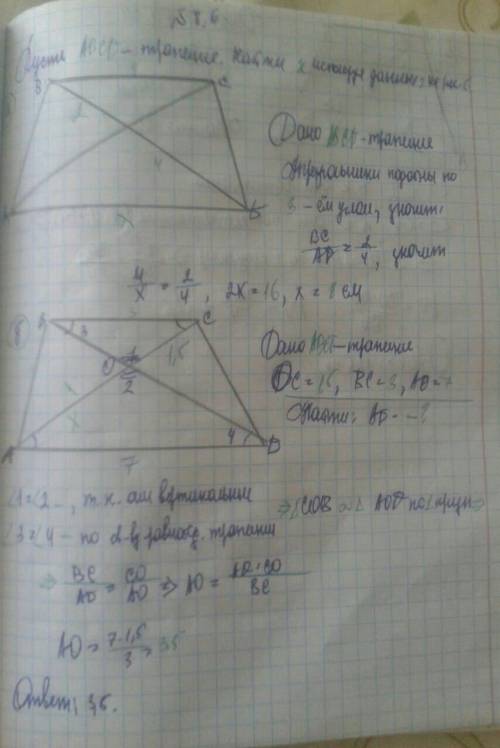 № 8.6.
Пусть ABCD – трапеция. Найти x используя данные на рис.
B
C
2
4
A
D
x
Дано ABCD-трапеция
Треугольники подобны по
3-ём углам, значит,
BC/AD = 2/4, значит
4/x = 2/4, 2x = 16, x = 8 см
б)
B
3
C
O
1
2
1,5
x
A
4
D
7
Дано ABCD-трапеция
OC = 1,5, BC = 3, AD = 7
Найти: AO - ?
∠1=∠2 -, т.к. они вертикальные
∠3=∠4 - по
трапеции
⇒ △COB ∼ △AOD по I призн ⇒
⇒ BC/AD = CO/AO ⇒ AO = AD·CO/BC
AO = 7·1,5/3 = 3,5
Ответ: 3,5.